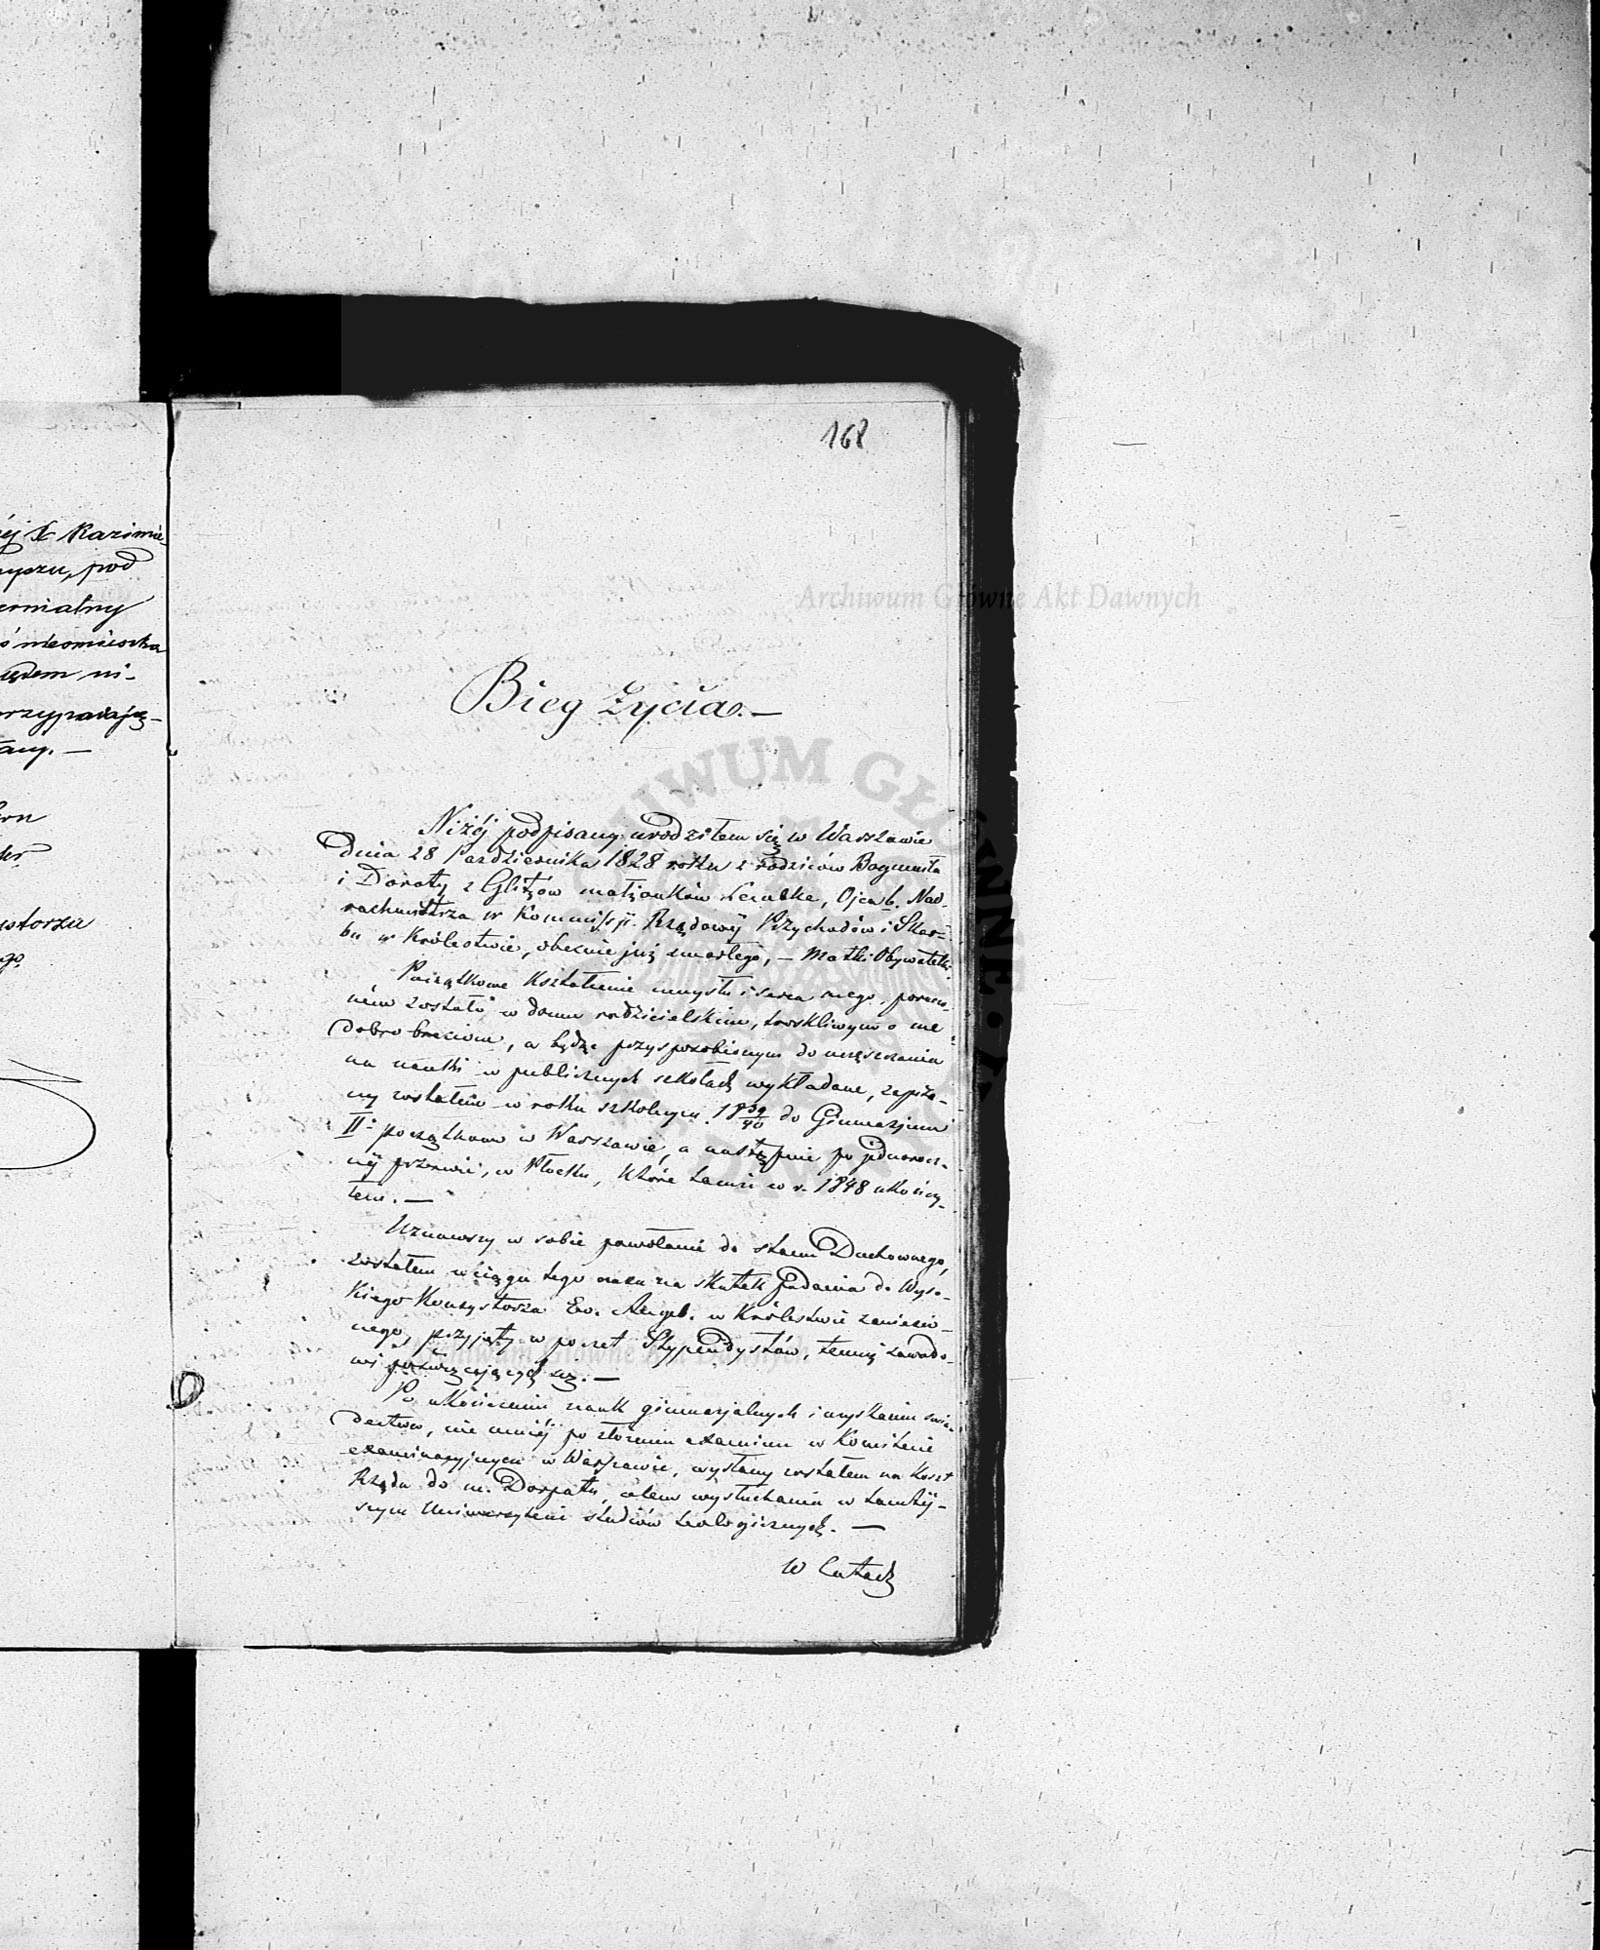 168
ej X Kazimie-
yszu, pod
ernialny
ędem ni-
any. —
Bieg Życia. —
Niżéj podpisany urodziłem się w Warszawie
dnia 28 Października 1828 roku z rodziców Bogumiła
i Doroty z Glitzów małżonków, Ojca b. Nad-
rachmistrza w Kommissji Rządowéj Przychodów i Skar-
bu w Królestwie, obecnie już zmarłego, — Matki Obywatelki.
Początkowe kształcenie umysłu i serca mego, poruczo-
ném zostało w domu rodzicielskim, troskliwym o me
dobro braciom, a będąc przysposobionym do uczęszczania
na nauki w publicznych szkołach wykładane, zapisa-
ny zostałem w roku szkolnym 1839/40 do Gimnazjum
IIo początkowo w Warszawie, a następnie po jednorocz-
néj przerwie, w Płocku, które także w r. 1848 ukończy-
łem. —
Uznawszy w sobie powołanie do stanu Duchownego,
zostałem w ciągu tego czasu na skutek podania do Wyso-
kiego Konsystorza Ew. Augsb. w Królestwie zaniesio-
nego, przyjęty w poczet Stypendystów, temuż zawodo-
wi poświęcających się. —
Po ukończeniu nauk gimnazjalnych i uzyskaniu świa-
dectwa, nie mniéj po złożeniu examinu w Komitecie
examinacyjnym w Warszawie, wysłany zostałem na koszt
Rządu do m. Dorpatu, celem wysłuchania w tamtéj-
szym Uniwersytecie studiów teologicznych. —
W latach
Archiwum Główne Akt Dawnych